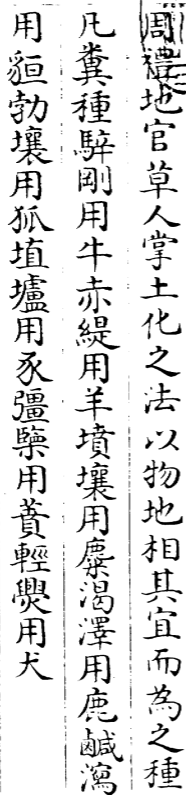 周禮地官草人掌土化之法以物地相其宜而為之種
凡糞種騂剛用牛赤緹用羊墳壤用麋渴澤用鹿鹹瀉
用貆勃壤用狐埴壚用豕彊㯺用蕡輕㷅用犬